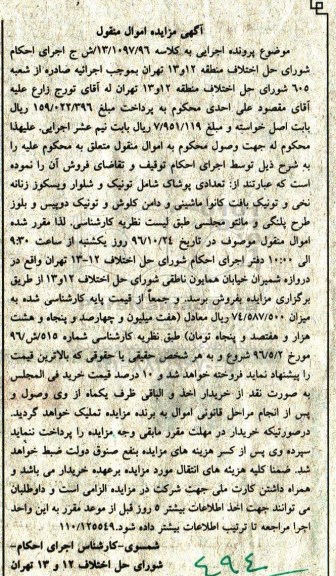 آگهی مزایده اموال منقول
موضوع پرونده اجرایی به کلاسه ۱۳/۱۰۹۷/۹۶/ش ج اجرای احکام
شورای حل اختلاف منطقه ۱۲و۱۳ تهران بموجب اجرائیه صادره از شعبه
۶۰۵ شورای حل اختلاف منطقه ۱۲و۱۳ تهران له آقای تورج زارع علیه
آقای مقصود علی احدی محکوم به پرداخت مبلغ ۱۵۹/۰۲۲/۳۹۶ ریال
بابت اصل خواسته و مبلغ ۷/۹۵۱/۱۱۹ ریال بابت نیم عشر اجرایی. علیهذا
محکوم له جهت وصول محکوم به اموال منقول متعلق به محکوم علیه را
به شرح ذیل توسط اجرای احکام توقیف و تقاضای فروش آن را نموده
است که عبارتند از: تعدادی پوشاک شامل تونیک و شلوار ویسکوز زنانه
نخی و تونیک بافت کانوا ماشینی و دامن کلوش و تونیک دوپیس و بلوز
طرح پلنگی و مانتو مجلسی طبق لیست نظریه کارشناسی. لذا مقرر شده
اموال منقول موصوف در تاریخ ۹۶/۱۰/۲۴ روز یکشنبه از ساعت ۹:۳۰
الی ۱۰:۰۰ دفتر اجرای احکام شورای حل اختلاف ۱۲-۱۳ تهران واقع در
دروازه شمیران خیابان همایون ناطقی شورای حل اختلاف ۱۲و۱۳ از طریق
برگزاری مزایده بفروش برسد. و جمعاً از قیمت پایه کارشناسی شده به
میزان ۷۴/۵۸۷/۵۰۰ ریال معادل (هفت میلیون و چهارصد و پنجاه و هشت
هزار و هفتصد و پنجاه تومان) طبق نظریه کارشناسی شماره ۵۱۵/ش/۹۶
مورخ ۹۶/۵/۲ شروع و به هر شخص حقیقی یا حقوقی که بالاترین قیمت
را پیشنهاد نماید فروخته خواهد شد و ۱۰ درصد قیمت خرید فی المجلس
به صورت نقد از خریدار اخذ و الباقی ظرف یکماه از وی وصول و
پس از انجام مراحل قانونی اموال به برنده مزایده تملیک خواهد گردید.
درصورتیکه خریدار در مهلت مقرر مابقی وجه مزایده را پرداخت ننماید
سپرده وی پس از کسر هزینه های مزایده بنفع صندوق دولت ضبط خواهد
شد. ضمنا کلیه هزینه های انتقال مورد مزایده برعهده خریدار می باشد و
همراه داشتن کارت ملی جهت شرکت در مزایده الزامی است و داوطلبان
می توانند جهت اخذ اطلاعات بیشتر ۵ روز قبل از موعد مقرر به این واحد
اجرا مراجعه تا ترتیب اطلاعات بیشتر داده شود.۱۱۰/۱۲۵۵۴۹
شمسوی-کارشناس اجرای احکام-
شورای حل اختلاف ۱۲ و ۱۳ تهران